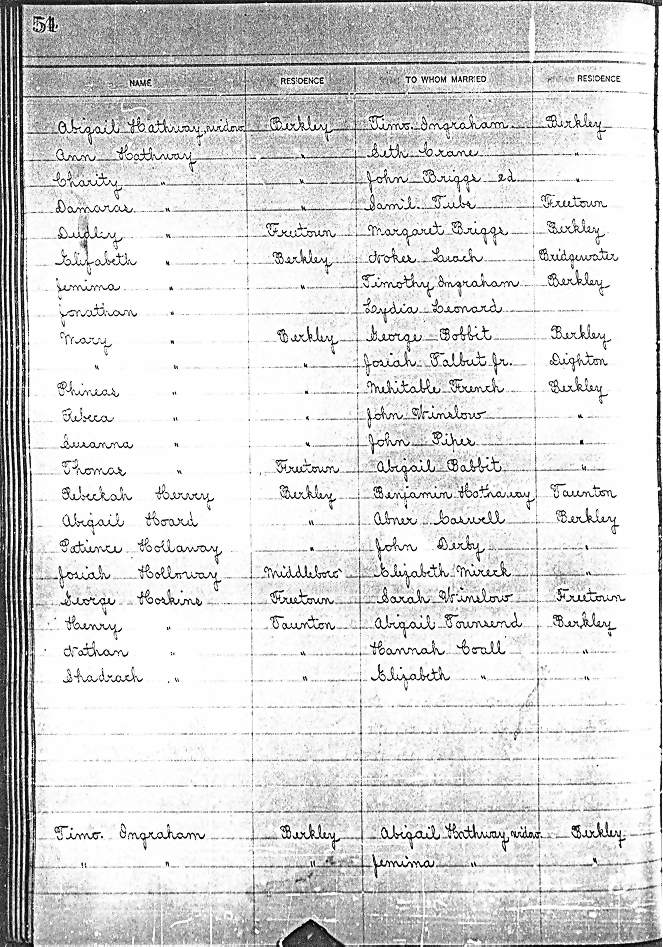 54
NAME RESIDENCE TO WHOM MARRIED RESIDENCE
Abigail Hathway, widow Berkley Timo. Ingraham Berkley
Ann Hathway " Seth Crane "
Charity " " John Briggs ed "
Damaras " " Samll Tubs Freetown
Dudley " Freetown Margaret Briggs Berkley
Elizabeth " Berkley Nokes Leach Bridgewater
Jemima " " Timothy Ingraham Berkley
Jonathan " Lydia Leonard
Mary " Berkley George Bobbit Berkley
" " " Josiah Talbut Jr. Dighton
Phineas " " Mehitable French Berkley
Rebeca " " John Winslow "
Susanna " " John Pipes "
Thomas " Freetown Abigail Babbit "
Rebeckah Hervey Berkley Benjamin Hathaway Taunton
Abigail Hoard " Abner Caswell Berkley
Patience Hollaway " John Derby "
Josiah Holloway Middleboro Elizabeth Mireck "
George Hoskins Freetown Sarah Winslow Freetown
Henry " Taunton Abigail Townsend Berkley
Nathan " " Hannah Coall "
Shadrach " " Elizabeth " "
Timo. Ingraham Berkley Abigail Hathway, widow Berkley
" " " Jemima " "